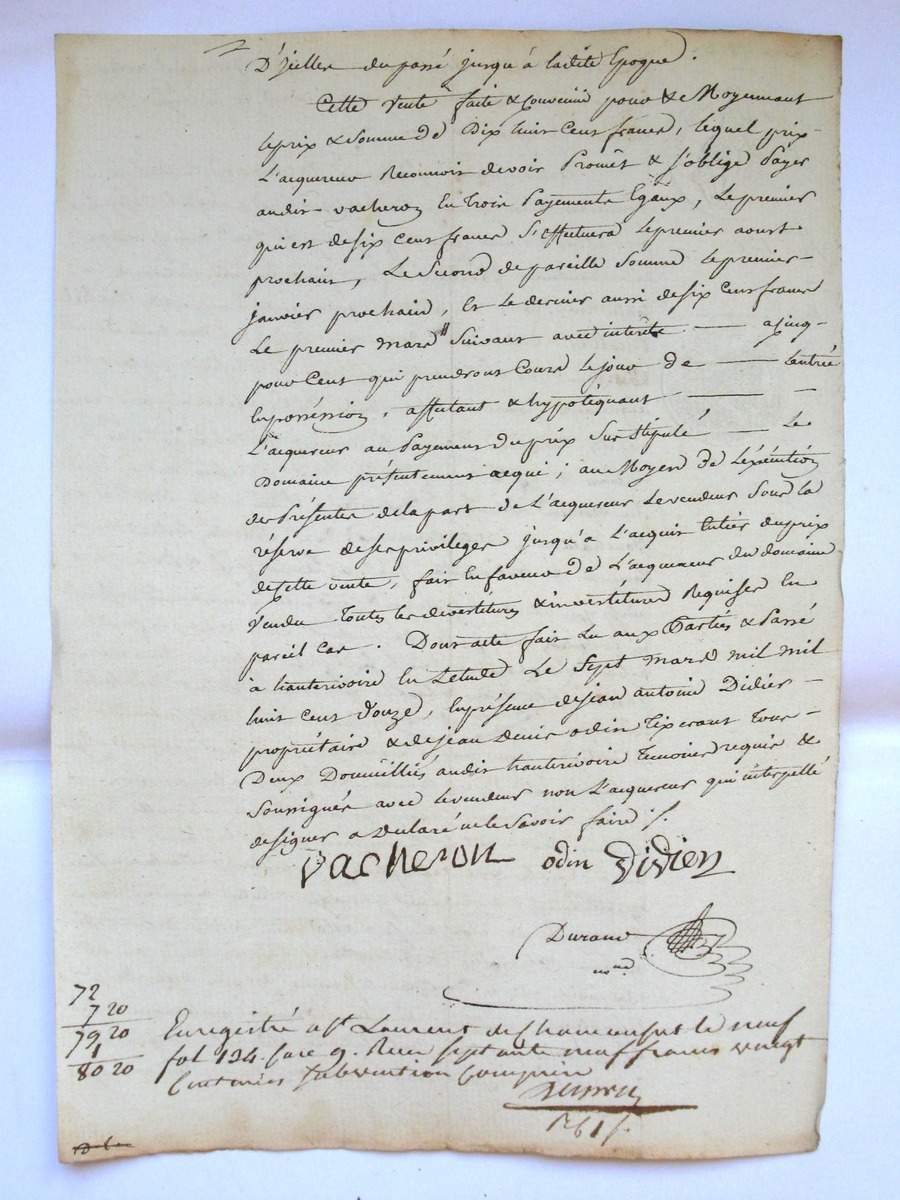 D'jceller du passé jusqu'à ladite Epoque.
Cette vente faite & Convenue pour & Moyennant
le prix & Somme de Dix huit Cent francs, lequel prix
L'acquereur Reconnoit devoir Promet & s'oblige Payer
audit vacheron En trois Payements Egaux, Le premier
qui est de six Cent francs S'effectuera le premier aoust
prochain, Le Second de pareille Somme le premier
janvier prochain, Et le dernier aussi de six Cent francs
Le premier mars Suivant avec interêts — a cinq
pour Cent qui prendront Cours le jour de — Lentrée
En possession, affectant & hypotéquant —
L'acquereur au Payement du prix Sus Stipulé — Le
Domaine présentement acqui; au Moyen de L'éxécution
des Présentes de la part de L'acquereur Le vendeur Sous la
réserve de ses privileges jusqu'a L'acquit Entier du prix
de cette vente, fait En faveur de L'acquereur du domaine
Vendu toutes les devestitures & investitures Requises En
pareil Cas. Dont acte fait Lu aux Parties & Passé
à hauterivoire En Letude Le Sept mars mil mil
huit Cent Douze, En présence de jean antoine Didier
propriétaire & de jean Denis odin Tixerant Tous
Deux Domiciliés audit hauterivoire Temoins requis &
Soussignés avec le vendeur non L'acquereur qui interpellé
de signer a Declaré ne le Savoir faire /.
vacheron odin Didier
Durand
no.re
72
7 20
79 20
1
80 20
Enregistré a St Laurent de Chamousset le neuf
fol 134 Case 9. Recu septante neuf francs vingt
Centimes Subvention Comprise